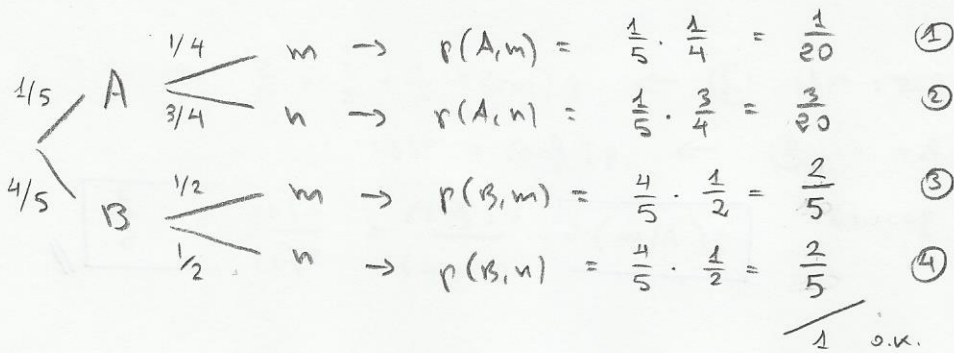 1/4 m → p(A,m) = 1/5 · 1/4 = 1/20 ①
1/5 A
3/4 n → p(A,n) = 1/5 · 3/4 = 3/20 ②
4/5 1/2 m → p(B,m) = 4/5 · 1/2 = 2/5 ③
B
1/2 n → p(B,n) = 4/5 · 1/2 = 2/5 ④
1 o.k.